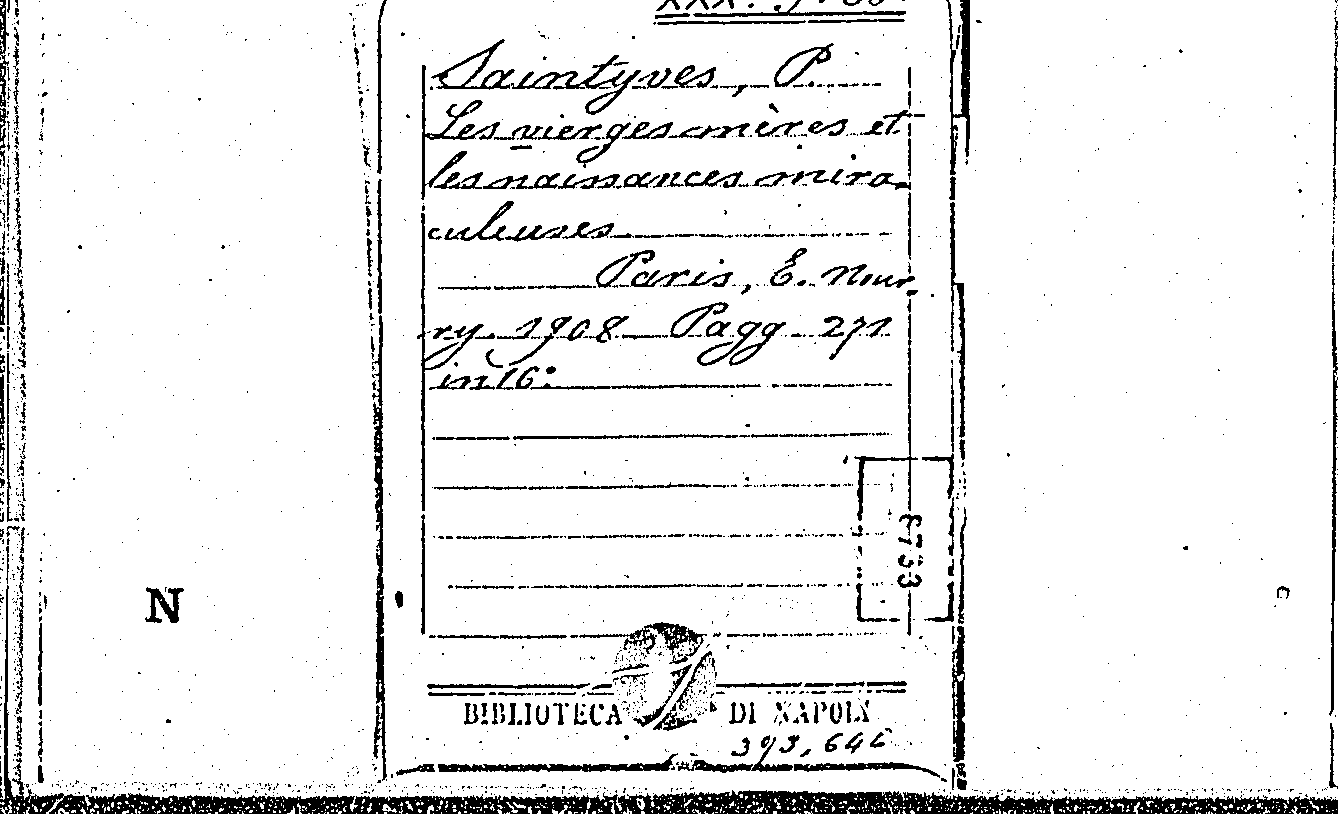 Saintyves, P.
Les vierges mères et
les naissances mira-
culeuses
Paris, E. Nour-
ry. 1908 Pagg. 271
in 16°
6733
N
BIBLIOTECA DI NAPOLI